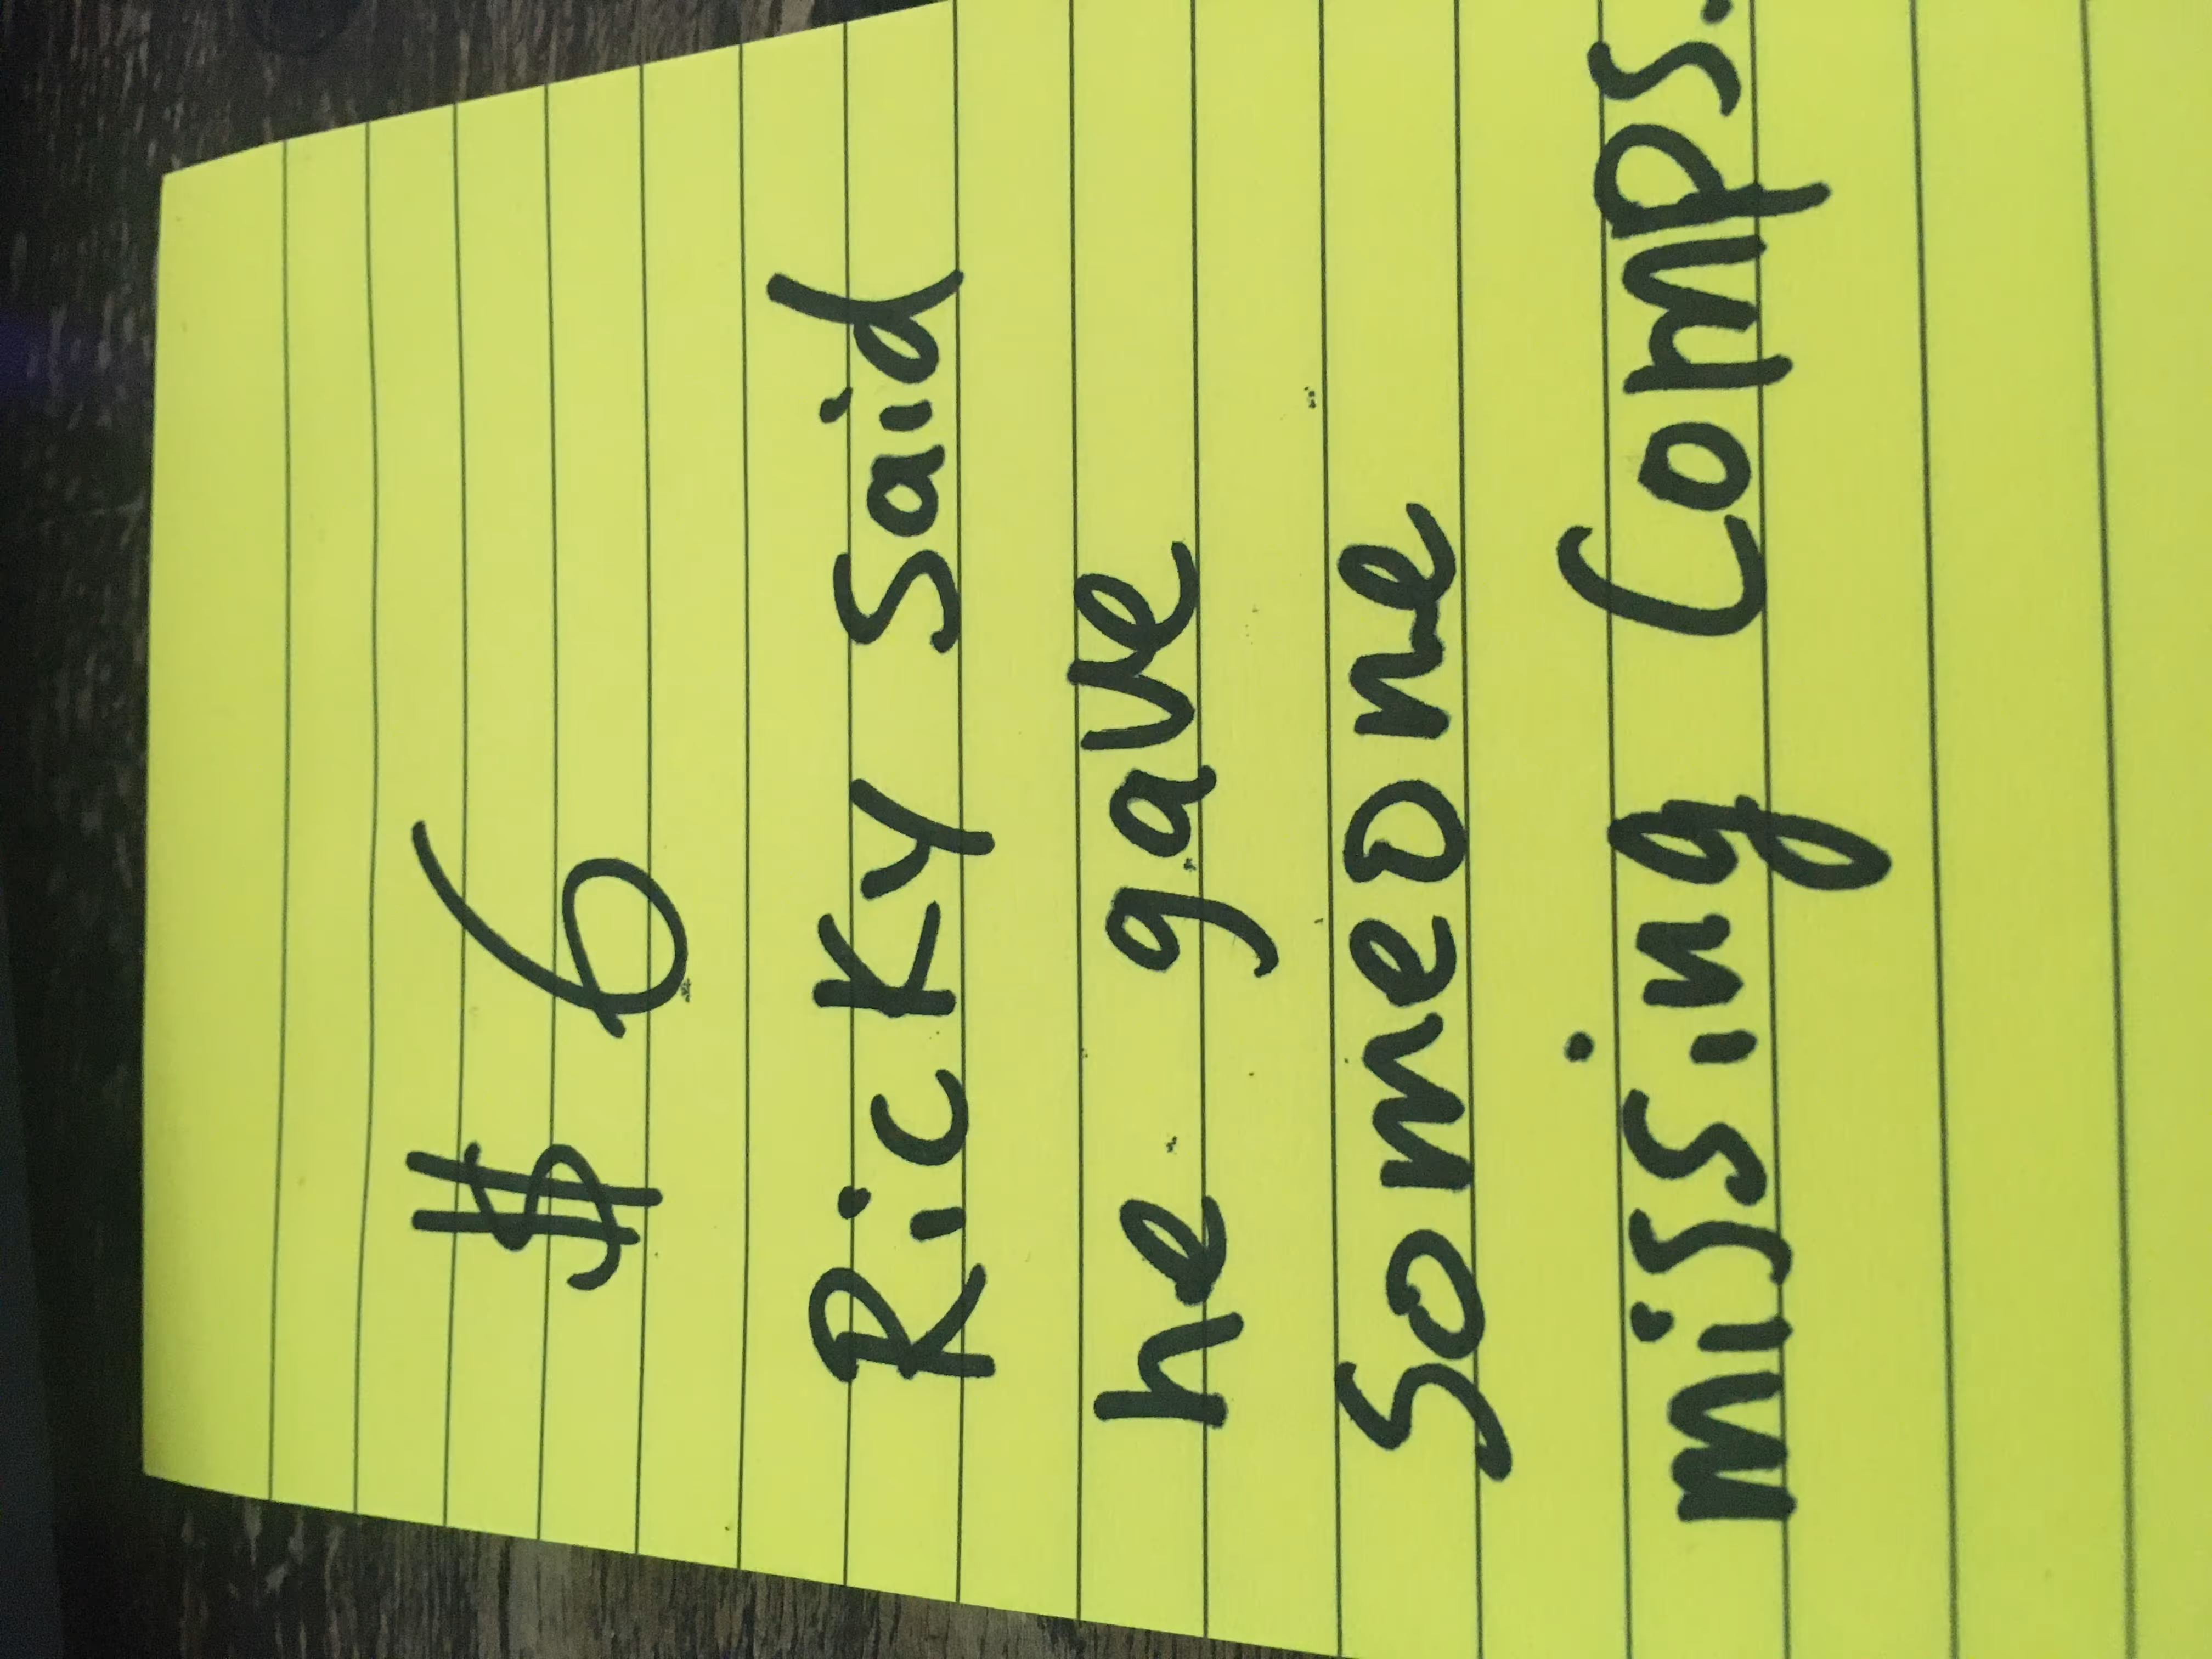 $ 6
Ricky Said
he gave
Someone
missing Comps.